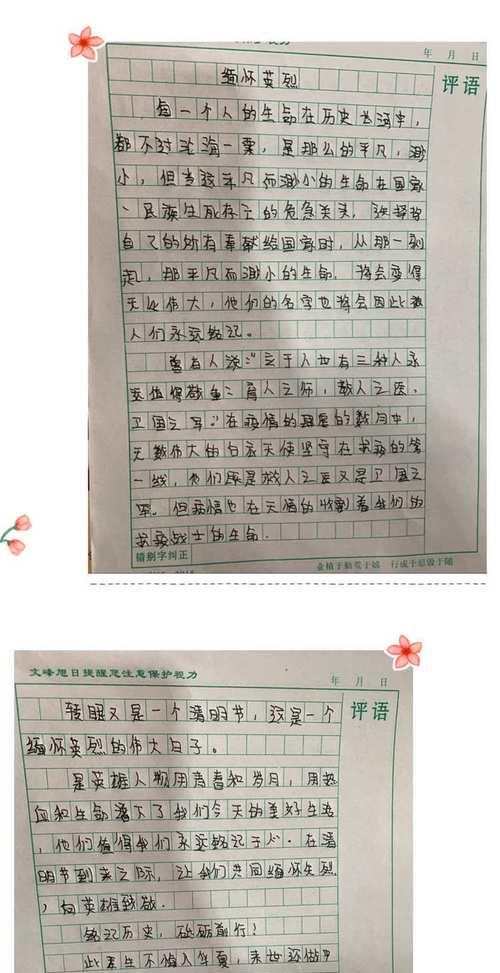 年 月 日
评语
缅怀英烈
每一个人的生命在历史长河中，
都不过沧海一粟，是那么的平凡，渺
小，但当这平凡而渺小的生命在国家
、民族生死存亡的危急关头，选择将
自己的所有奉献给国家时，从那一刻
起，那平凡而渺小的生命，将会变得
无比伟大，他们的名字也将会因此被
人们永远铭记。
曾有人说：“立于人世有三种人永
远值得敬重：育人之师，救人之医，
卫国之军。”在疫情的肆虐的数月中，
无数伟大的白衣天使坚守在抗疫的第
一线，他们既是救人之医又是卫国之
军。但疫情也在无情的收割着我们的
抗疫战士的生命。
错别字纠正
业精于勤荒于嬉 行成于思毁于随
文峰旭日提醒您注意保护视力
年 月 日
评语
转眼又是一个清明节，这是一个
缅怀英烈的伟大日子。
是英雄人物用青春和岁月，用热
血和生命著下了我们今天的美好生活
，他们值得我们永远铭记于心。在清
明节到来之际，让我们共同缅怀先烈
，向英雄致敬。
铭记历史，砥砺前行！
此生不悔入华夏，来世还做中